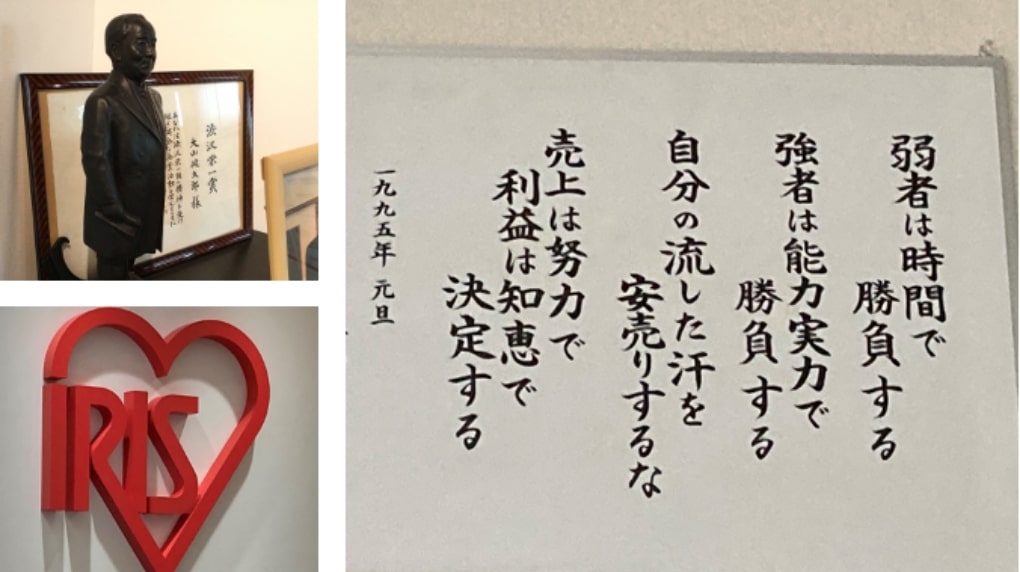 渋沢栄一賞
大山健太郎 様
IRIS
弱者は時間で
勝負する
強者は能力実力で
勝負する
自分の流した汗を
安売りするな
売上は努力で
利益は知恵で
決定する
一九九五年 元旦